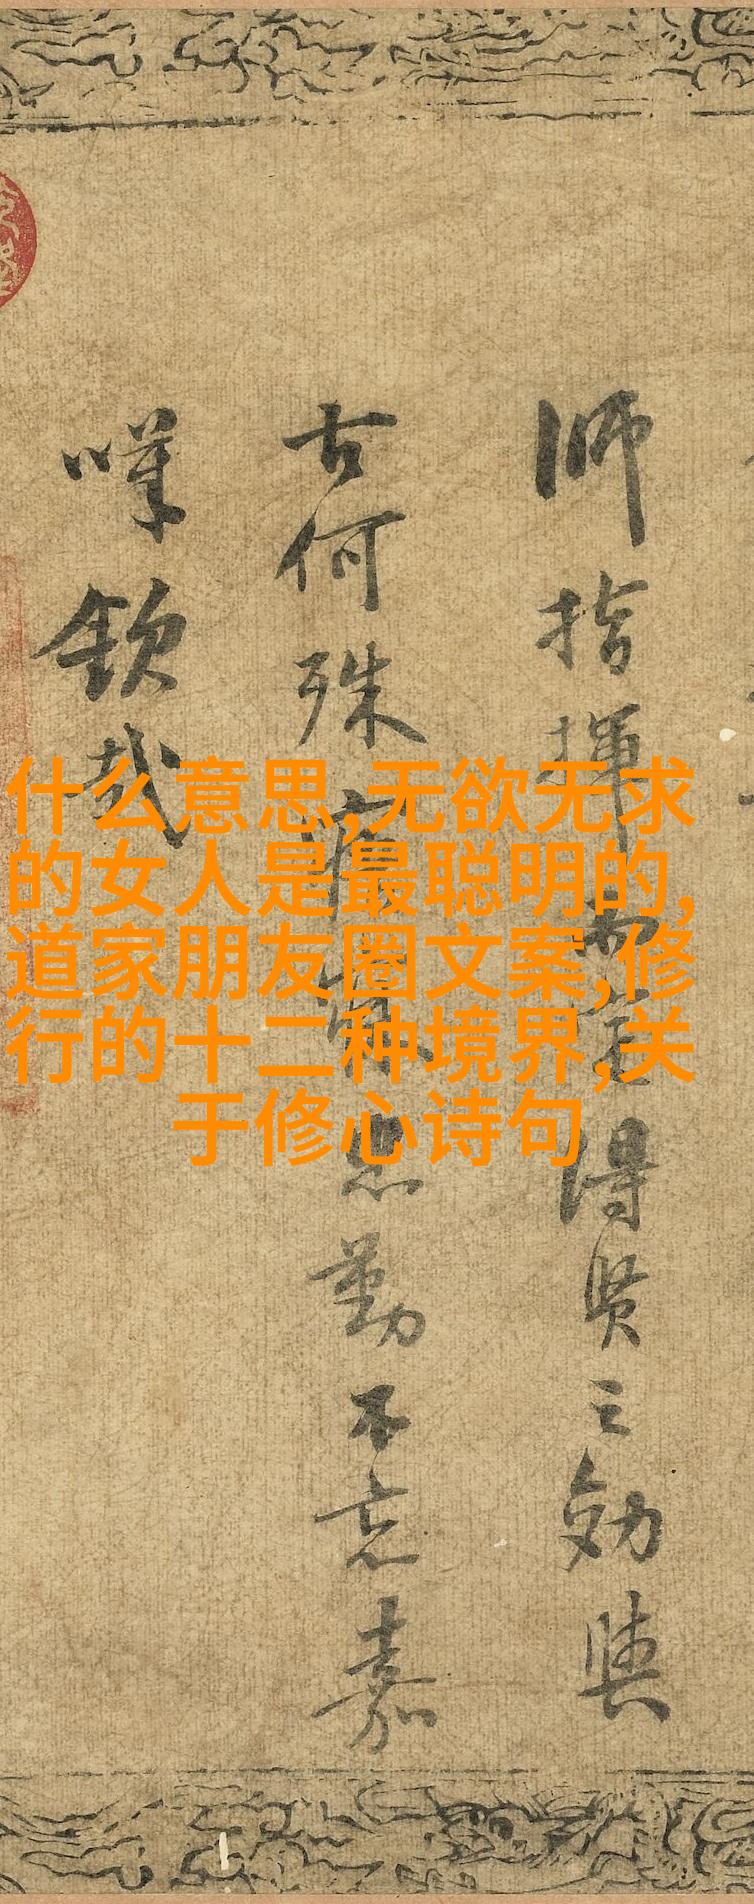 師指揮而定得賢之効與
古何殊寤寐忠勤不忘嘉
嘆欽哉
什么意思,无欲无求
的女人是最聪明的,
道家朋友圈文案,修
行的十二种境界,关
于修心诗句